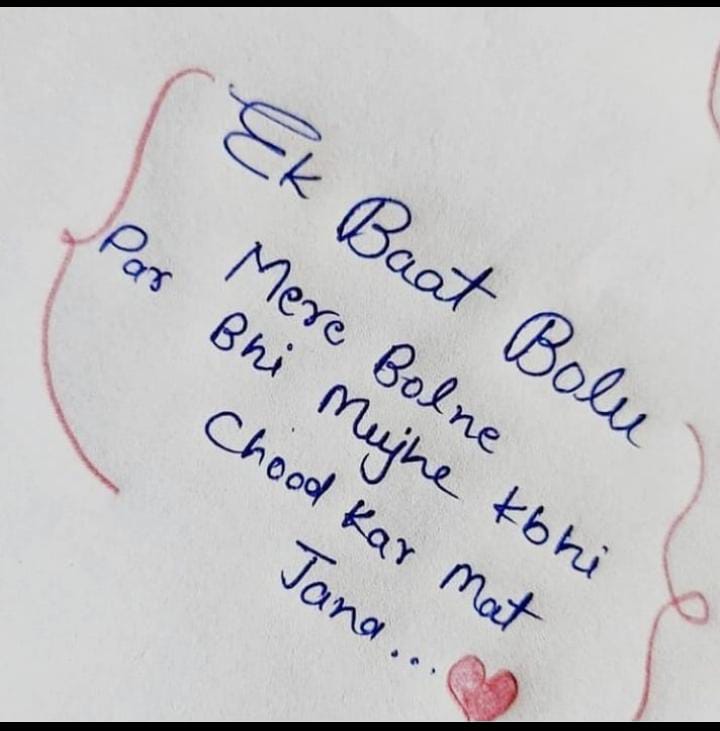 Ek Baat Bolu
Par Mere Bolne
Bhi Mujhe kbhi
Chood Kar Mat
Jana...